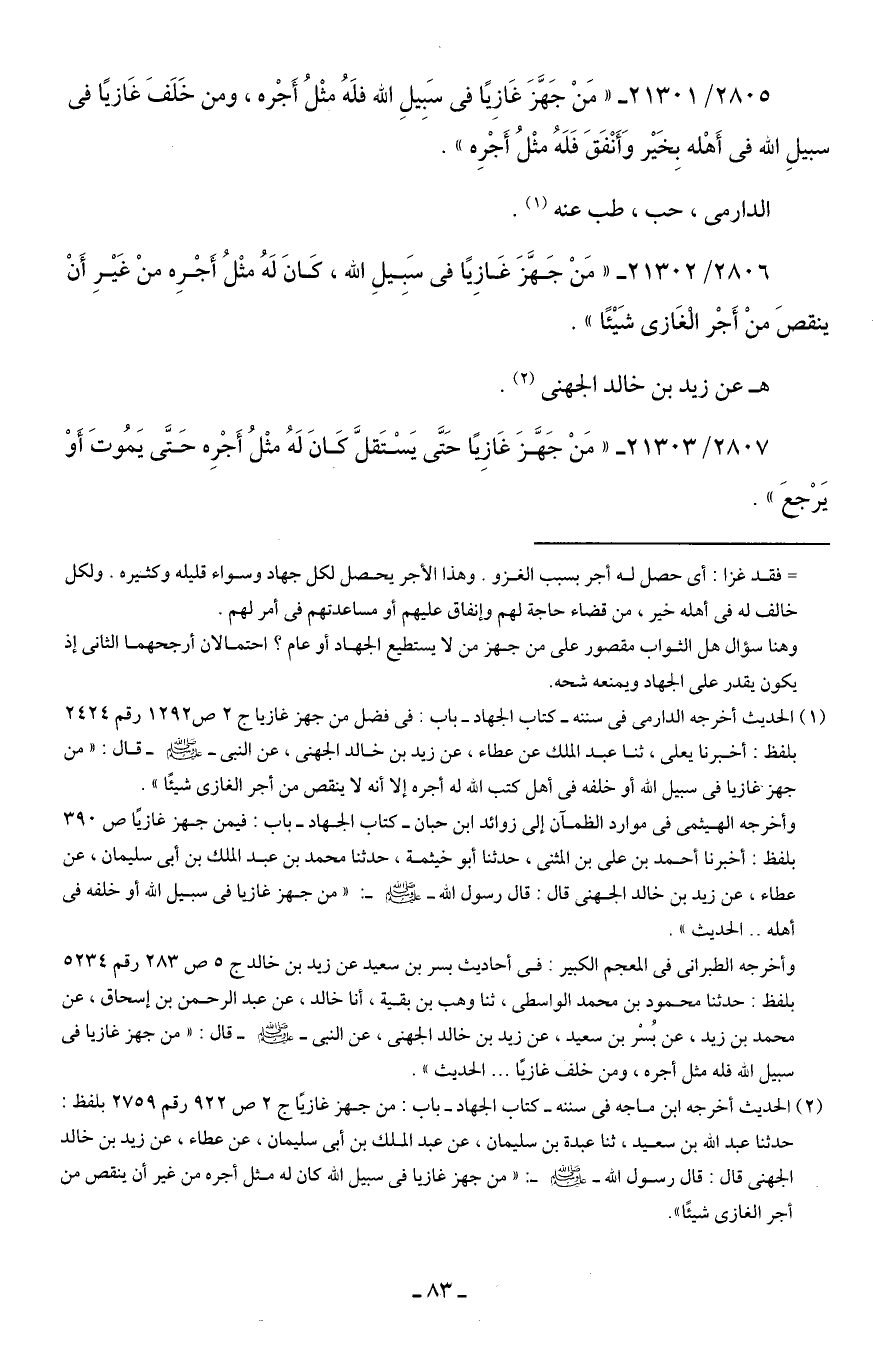 ٢٨٠٥/ ٢١٣٠١ـ « مَنْ جَهَّزَ غَازِيًا فى سَبِيلِ الله فلَهُ مثْلُ أَجْرِه ، ومن خَلَفَ غَازِيًا فى
سبيلِ الله فى أَهْله بِخَيْر وَأَنْفَقَ فَلَهُ مثْلُ أَجْرِه » .
الدارمى ، حب ، طب عنه (١) .
٢٨٠٦/ ٢١٣٠٢ـ « مَنْ جَهَّزَ غَازِيًا فى سَبِيلِ الله ، كَانَ لَهُ مثْلُ أَجْرِه منْ غَيْرِ أَنْ
ينقصَ منْ أَجْر الْغَازى شَيْئًا » .
هـ عن زيد بن خالد الجهنى (٢) .
٢٨٠٧/ ٢١٣٠٣ـ « مَنْ جَهَّزَ غَازِيًا حَتَّى يَسْتَقلَّ كَانَ لَهُ مثْلُ أَجْرِه حَتَّى يَمُوتَ أَوْ
يَرْجعَ » .
= فقد غزا : أى حصل له أجر بسبب الغزو . وهذا الأجر يحصل لكل جهاد وسواء قليله وكثيره . ولكل
خالف له فى أهله خير ، من قضاء حاجة لهم وإنفاق عليهم أو مساعدتهم فى أمر لهم .
وهنا سؤال هل الثواب مقصور على من جهز من لا يستطيع الجهاد أو عام ؟ احتمالان أرجحهما الثانى إذ
يكون يقدر على الجهاد ويمنعه شحه.
(١) الحديث أخرجه الدارمى فى سننه ـ كتاب الجهاد ـ باب : فى فضل من جهز غازيا ج ٢ ص١٢٩٢ رقم ٢٤٢٤
بلفظ : أخبرنا يعلى ، ثنا عبد الملك عن عطاء ، عن زيد بن خالد الجهنى ، عن النبى ـ ﷺ ـ قال : « من
جهز غازيا فى سبيل الله أو خلفه فى أهل كتب الله له أجره إلا أنه لا ينقص من أجر الغازى شيئًا » .
وأخرجه الهيثمى فى موارد الظمآن إلى زوائد ابن حبان ـ كتاب الجهاد ـ باب : فيمن جهز غازيًا ص ٣٩٠
بلفظ : أخبرنا أحمد بن على بن المثنى ، حدثنا أبو خيثمة ، حدثنا محمد بن عبد الملك بن أبى سليمان ، عن
عطاء ، عن زيد بن خالد الجهنى قال : قال رسول الله ـ ﷺ ـ: « من جهز غازيا فى سبيل الله أو خلفه فى
أهله .. الحديث » .
وأخرجه الطبرانى فى المعجم الكبير : فى أحاديث بسر بن سعيد عن زيد بن خالد ج ٥ ص ٢٨٣ رقم ٥٢٣٤
بلفظ : حدثنا محمود بن محمد الواسطى ، ثنا وهب بن بقية ، أنا خالد ، عن عبد الرحمن بن إسحاق ، عن
محمد بن زيد ، عن بُسْر بن سعيد ، عن زيد بن خالد الجهنى ، عن النبى ـ ﷺ ـ قال : « من جهز غازيا فى
سبيل الله فله مثل أجره ، ومن خلف غازيًا ... الحديث » .
(٢) الحديث أخرجه ابن ماجه فى سننه ـ كتاب الجهاد ـ باب : من جهز غازيًا ج ٢ ص ٩٢٢ رقم ٢٧٥٩ بلفظ :
حدثنا عبد الله بن سعيد ، ثنا عبدة بن سليمان ، عن عبد الملك بن أبى سليمان ، عن عطاء ، عن زيد بن خالد
الجهنى قال : قال رسول الله ـ ﷺ ـ: « من جهز غازيا فى سبيل الله كان له مثل أجره من غير أن ينقص من
أجر الغازى شيئًا».
ـ ٨٣ ـ